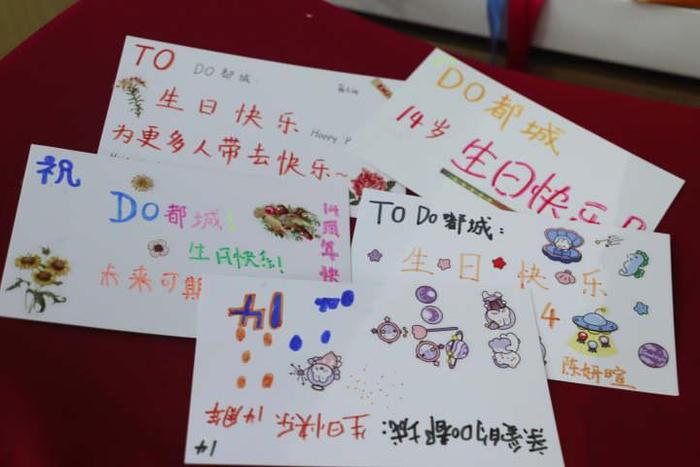 TO
DO都城
生日快乐
Happy
为更多人带去快乐~
DO都城
14岁
生日快乐
祝
DO都城!
14周年快
生日快乐!
未来可期
TO DO都城:
生日快乐
4
陈妍暄
14
亲爱的DO都城:
生日快乐 14周年
14